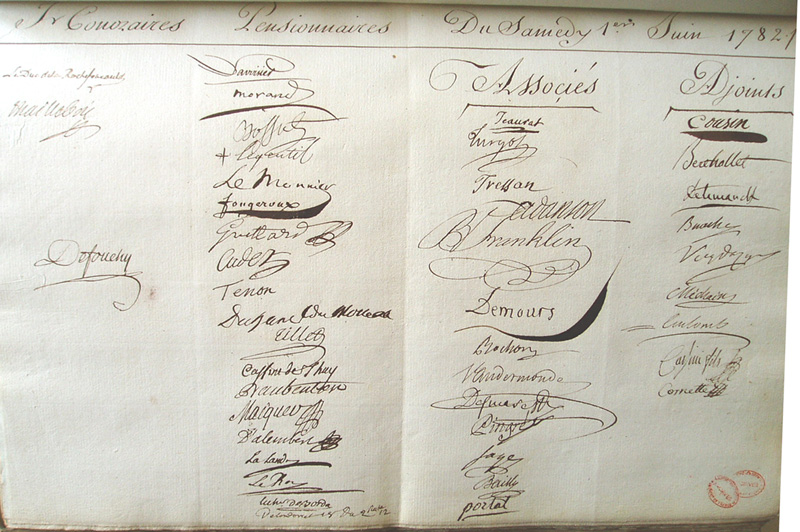 Honoraires Pensionnaires Du Samedy 1er Juin 1782
Associés
Adjoints
Le Duc de la Rochefoucauld
Maillebois
Defouchy
Darcires
morand
Bossut
+ legentil
Le Monnier
fougeroux
Guettard
Cadet
Tenon
Duhamel du Monceau
Tillet
Cassini de Thury
Daubenton
Macquer
D'alembert
La Lande
Le Roy
Jeaurat
Turgot
Tressan
adanson
B Franklin
Demours
Rochon
Vandermonde
Desmarest
Pingré
Sage
Bailly
portal
Cousin
Berthollet
Buache
Vicq dazyr
Méchain
Coulomb
Cassini fils
Cornette